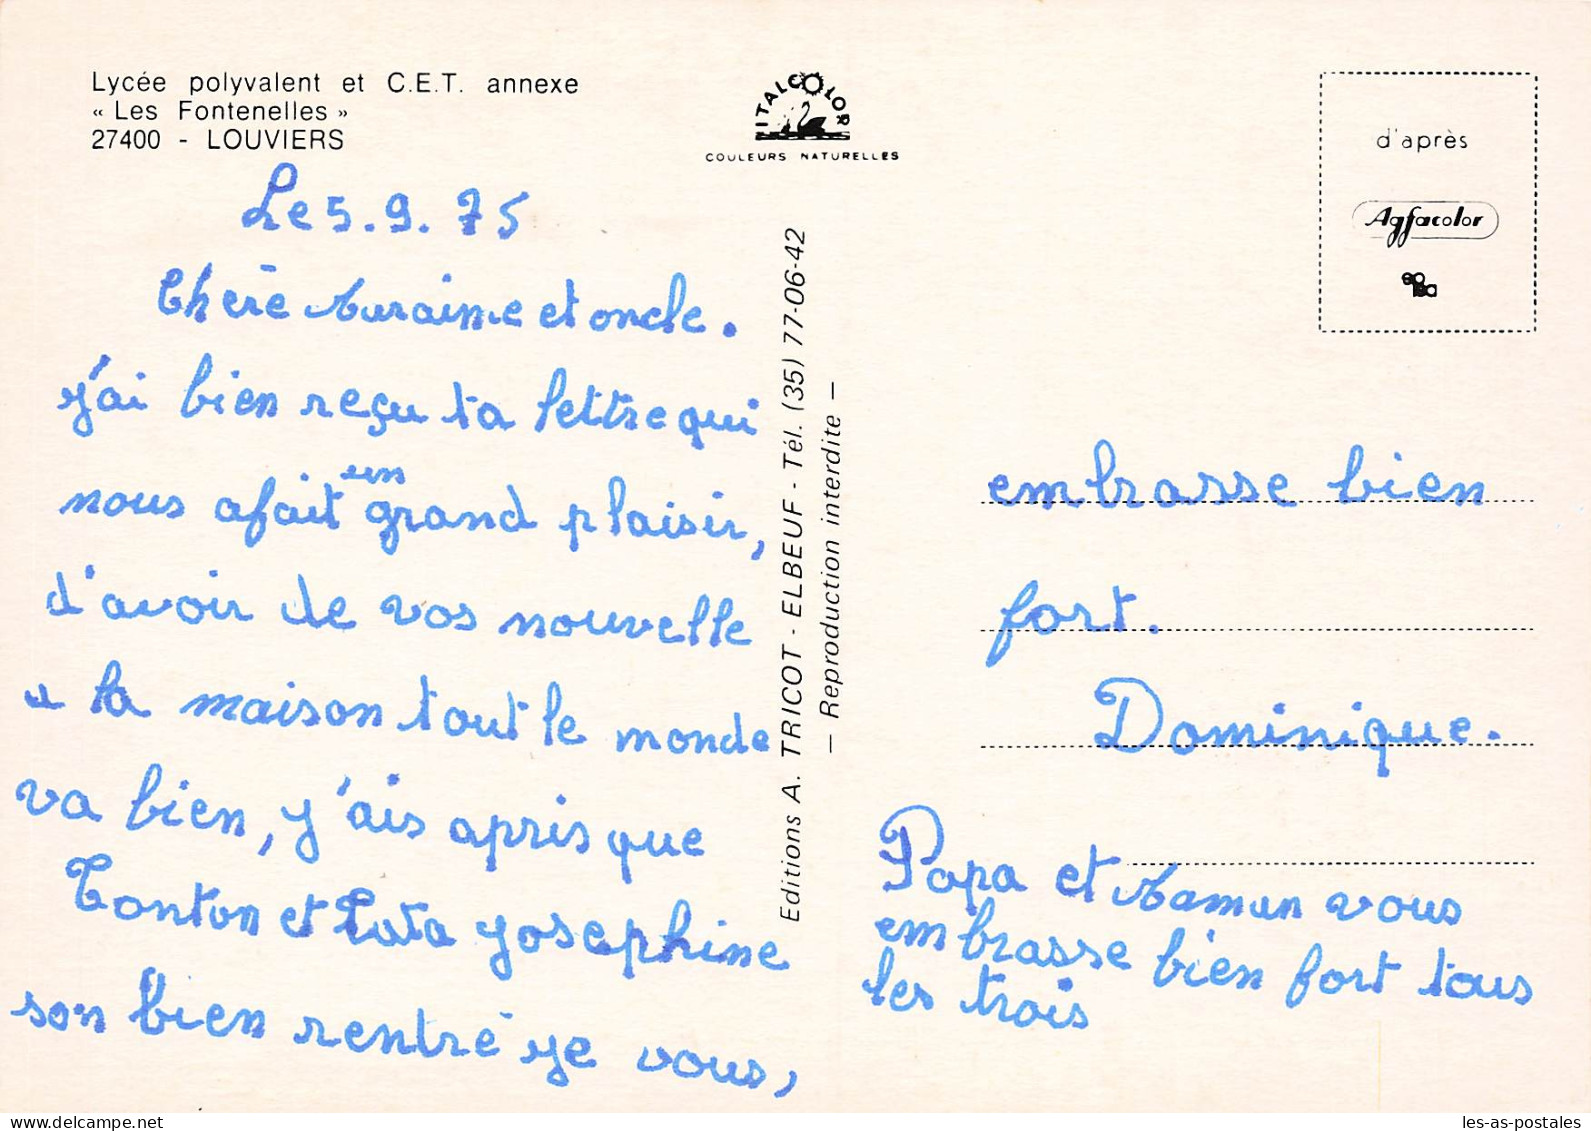 Lycée polyvalent et C.E.T. annexe
« Les Fontenelles »
27400 - LOUVIERS
ITALCOLOR
COULEURS NATURELLES
d'après
Agfacolor
Le 5.9.75
Chère et oncle.
j'ai bien reçu ta lettre qui
nous a fait un grand plaisir,
d'avoir de vos nouvelle
a la maison tout le monde
va bien, j'ais apris que
Tonton et Tata Josephine
son bien rentré je vous,
Editions A. TRICOT - ELBEUF - Tél. (35) 77-06-42
— Reproduction interdite —
embrasse bien
fort.
Dominique.
Papa et Maman vous
embrasse bien fort tous
les trois
les-as-postales.com